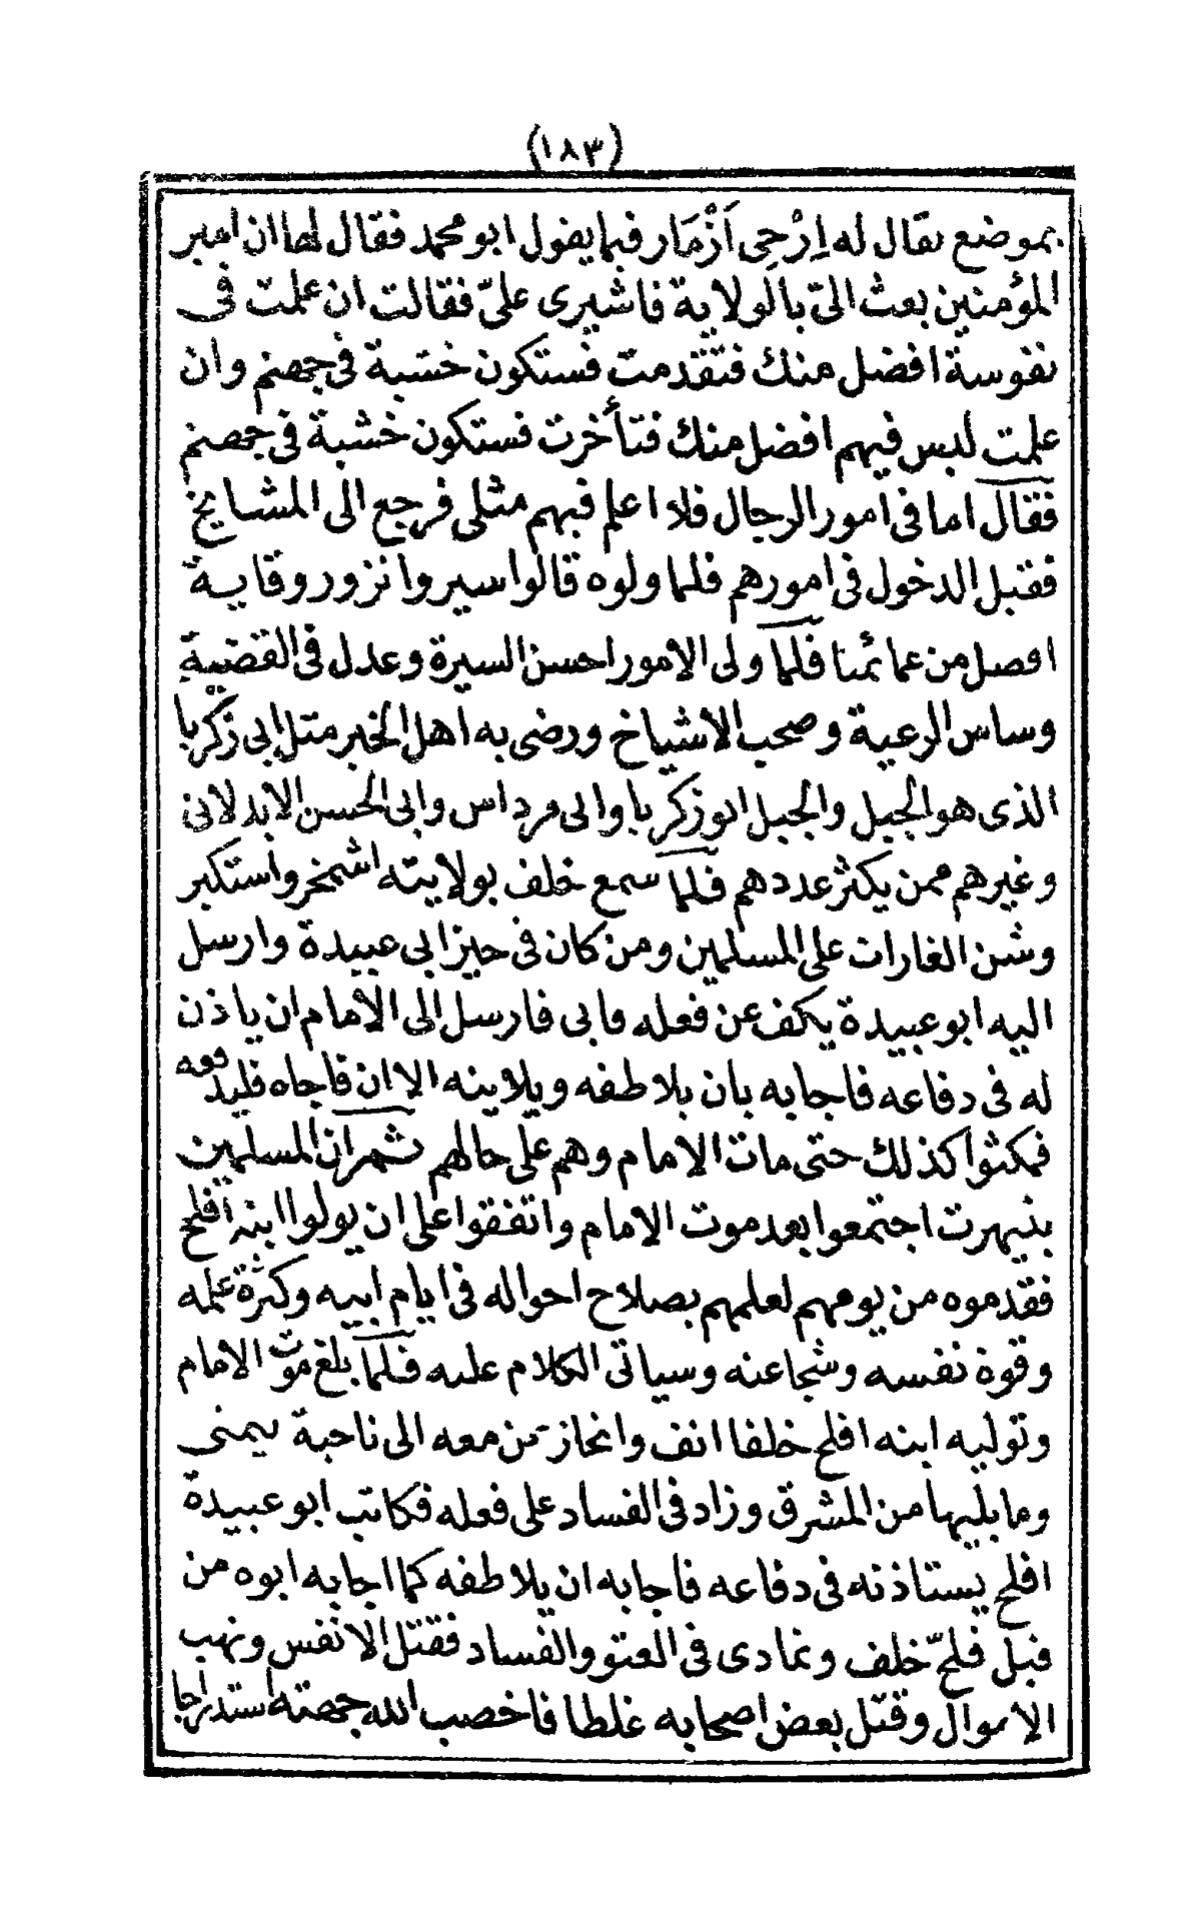 (١٨٣)
بموضع يقال له اِرْجِى اَزْمَار فيما يقول ابو محمد فقال لها ان امير
المؤمنين بعث الىّ بالولاية فاشيرى علىّ فقالت ان علمت فى
نفوسة افضل منك فتقدمت فستكون خشبة فى جهنم وان
علمت ليس فيهم افضل منك فتأخرت فستكون خشبة فى جهنم
فقال اما فى امور الرجال فلا اعلم فيهم مثلى فرجع الى المشايخ
فقبل الدخول فى امورهم فلما ولوه قالوا سيروا نزور وقاية
افضل من عمائمنا فلما ولى الامور احسن السيرة وعدل فى القضية
وساس الرعية وصحب الاشياخ ورضى به اهل الخير مثل ابى زكريا
الذى هو الجبل والجبل ابو زكريا وابى مرداس وابى الحسن الابدلانى
وغيرهم ممن يكثر عددهم فلما سمع خلف بولايته اشمخر واستكبر
وشن الغارات على المسلمين ومن كان فى حيز ابى عبيدة وارسل
اليه ابو عبيدة يكف عن فعله فابى فارسل الى الامام ان ياذن
له فى دفاعه فاجابه بان يلاطفه ويلاينه الا ان فاجاه فليدفعه
فمكثوا كذلك حتى مات الامام وهم على حالهم ثم ان المسلمين
بتيهرت اجتمعوا بعد موت الامام واتفقوا على ان يولوا ابنه افلح
فقدموه من يومهم لعلمهم بصلاح احواله فى ايام ابيه وكثرة علمه
وقوة نفسه وشجاعته وسياتى الكلام عليه فلما بلغ موت الامام
وتوليه ابنه افلح خلفا انف وانحاز من معه الى ناحية تيمتى
وما يليها من المشرق وزاد فى الفساد على فعله فكاتب ابو عبيدة
افلح يستاذنه فى دفاعه فاجابه ان يلاطفه كما اجابه ابوه من
قبل فلجّ خلف وتمادى فى العتو والفساد فقتل الانفس ونهب
الاموال وقتل بعض اصحابه غلطا فاخصب الله جهته استدراجا